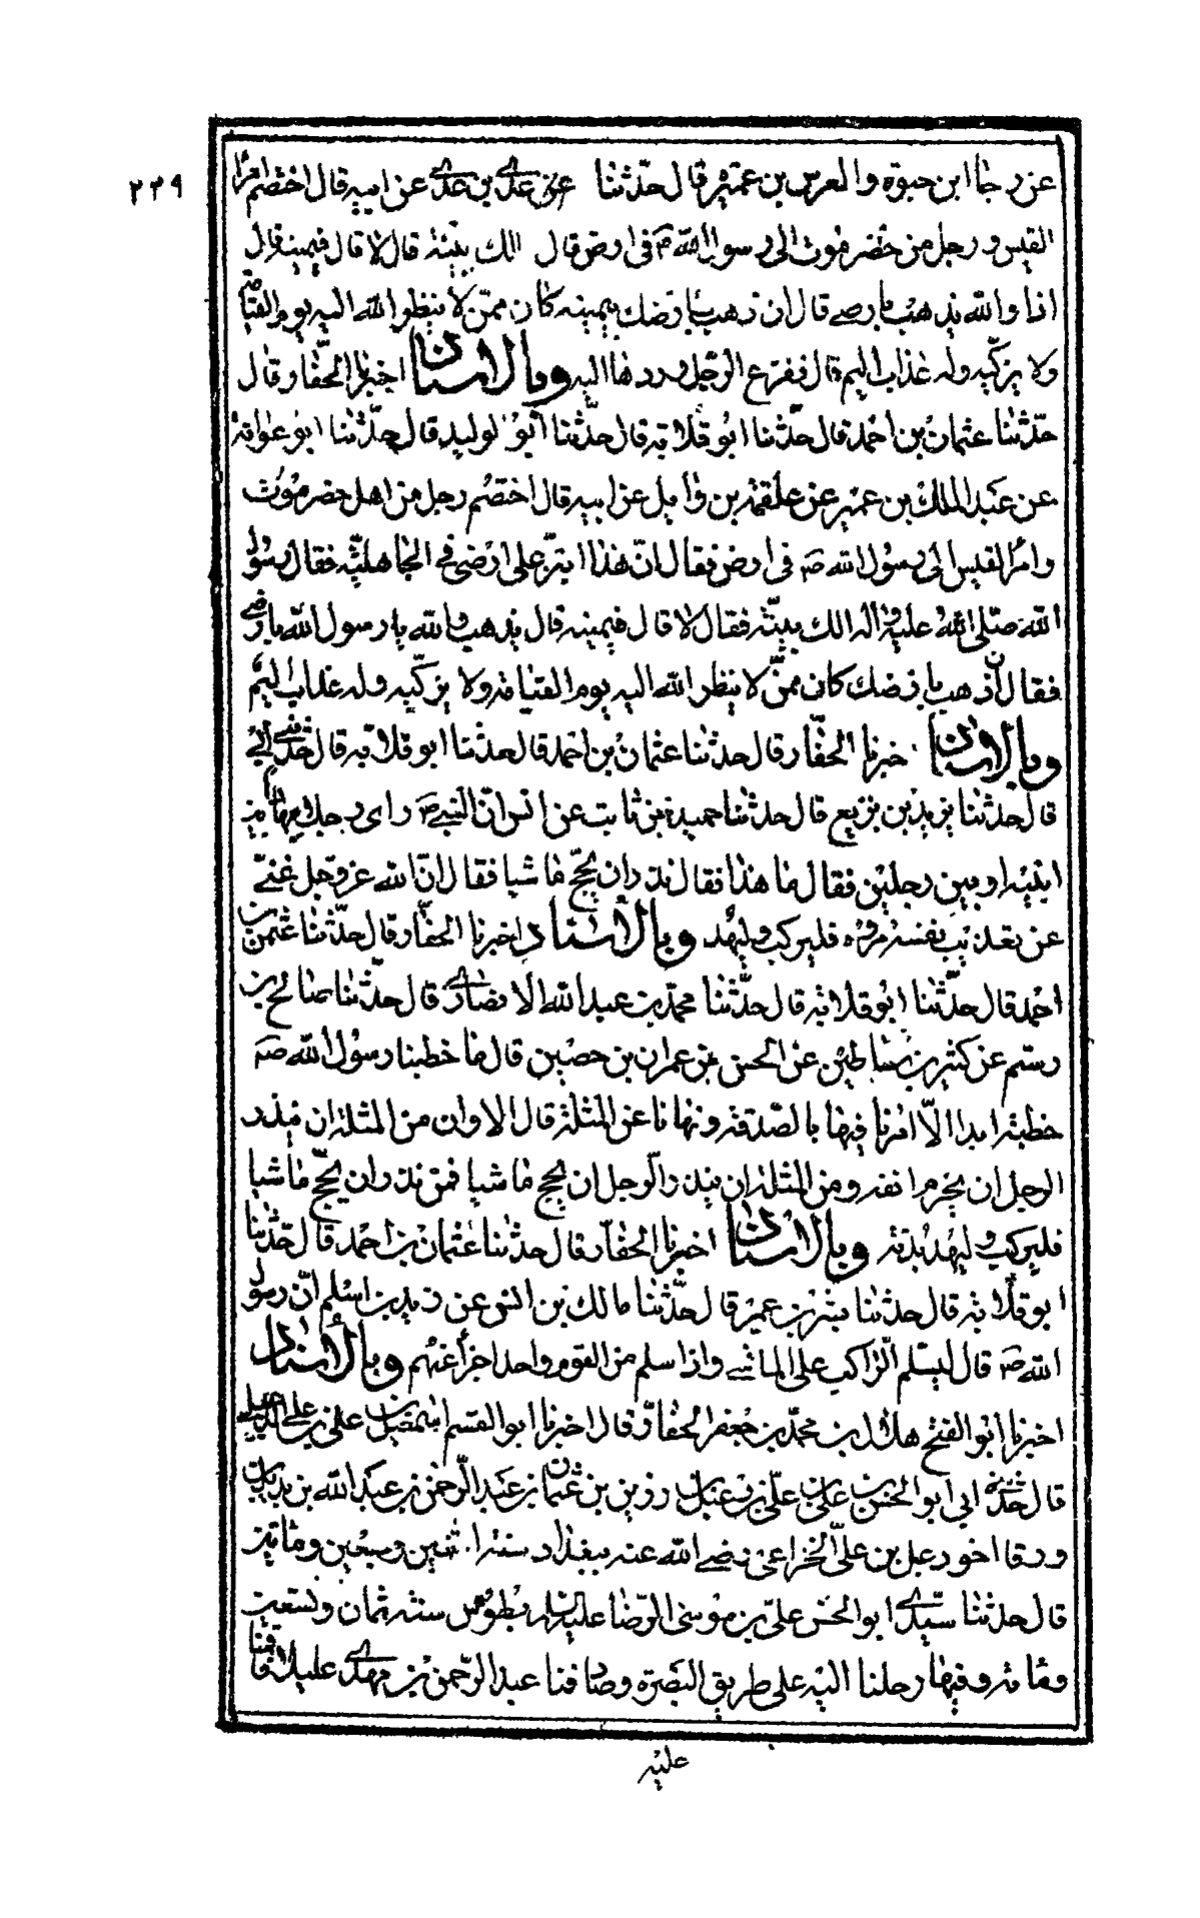 ٢٢٩
عن رجا ابن حيوة والعرس بن عميرة قال حدثنا عن عدي بن عدي عن ابيه قال اختصم امرأ
القيس ورجل من حضرموت الى رسول الله ص في ارض قال الك بينة قال لا قال فيمينه قال
اذا والله يذهب بارضي قال ان ذهب بارضك بيمينه كان ممن لا ينظر الله اليه يوم القيامة
ولا يزكيه وله عذاب اليم قال ففزع الرجل وردها اليه وبالاسناد اخبرنا الحفار قال
حدثنا عثمان بن احمد قال حدثنا ابو قلابة قال حدثنا ابو الوليد قال حدثنا ابو عوانة
عن عبد الملك بن عمير عن علقمة بن وايل عن ابيه قال اختصم رجل من اهل حضرموت
وامرأ القيس الى رسول الله ص في ارض فقال ان هذا ابتز على ارضي في الجاهلية فقال رسول
الله صلى الله عليه واله الك بينة فقال لا قال فيمينه قال يذهب والله يا رسول الله بارضي
فقال ان ذهب بارضك كان ممن لا ينظر الله اليه يوم القيامة ولا يزكيه وله عذاب اليم
وبالاسناد اخبرنا الحفار قال حدثنا عثمان بن احمد قال حدثنا ابو قلابة قال حدثني ابي
قال حدثنا يزيد بن بزيع قال حدثنا حميد عن ثابت عن انس ان النبي ص راى رجلا يهادى بين
ابنيه او بين رجلين فقال ما هذا فقال نذر ان يحج ماشيا فقال ان الله عز وجل غني
عن تعذيب نفسه مروه فليركب وليهد وبالاسناد اخبرنا الحفار قال حدثنا عثمن بن
احمد قال حدثنا ابو قلابة قال حدثنا محمد بن عبد الله الانصاري قال حدثنا صالح بن
رستم عن كثير بن شناطير عن الحسن عن عمران بن حصين قال ما خطبنا رسول الله ص
خطبة ابدا الا امرنا فيها بالصدقة ونهانا عن المثلة قال الا وان من المثلة ان ينذر
الرجل ان يخرم انفه ومن المثلة ان ينذر الرجل ان يحج ماشيا فمن نذر ان يحج ماشيا
فليركب وليهد بدنة وبالاسناد اخبرنا الحفار قال حدثنا عثمان بن احمد قال حدثنا
ابو قلابة قال حدثنا بشر بن عمير قال حدثنا مالك بن انس عن زيد بن اسلم ان رسول
الله ص قال ليسلم الراكب على الماشي واذا سلم من القوم واحد اجزأ عنهم وبالاسناد
اخبرنا ابو الفتح هلال بن محمد بن جعفر الحفار قال اخبرنا ابو القسم اسمعيل بن علي بن علي الدعبلي
قال حدثني ابي ابو الحسن علي بن علي بن دعبل بن رزين بن عثمان بن عبد الرحمن بن عبد الله بن بديل بن
ورقا اخو دعبل بن علي الخزاعي رضي الله عنه ببغداد سنة اثنين وسبعين ومائتين
قال حدثنا سيدي ابو الحسن علي بن موسى الرضا عليه السلام بطوس سنة ثمان وتسعين
ومائة وفيها رحلنا اليه على طريق البصرة وصادفنا عبد الرحمن بن مهدي عليلا فاقمنا
عليه